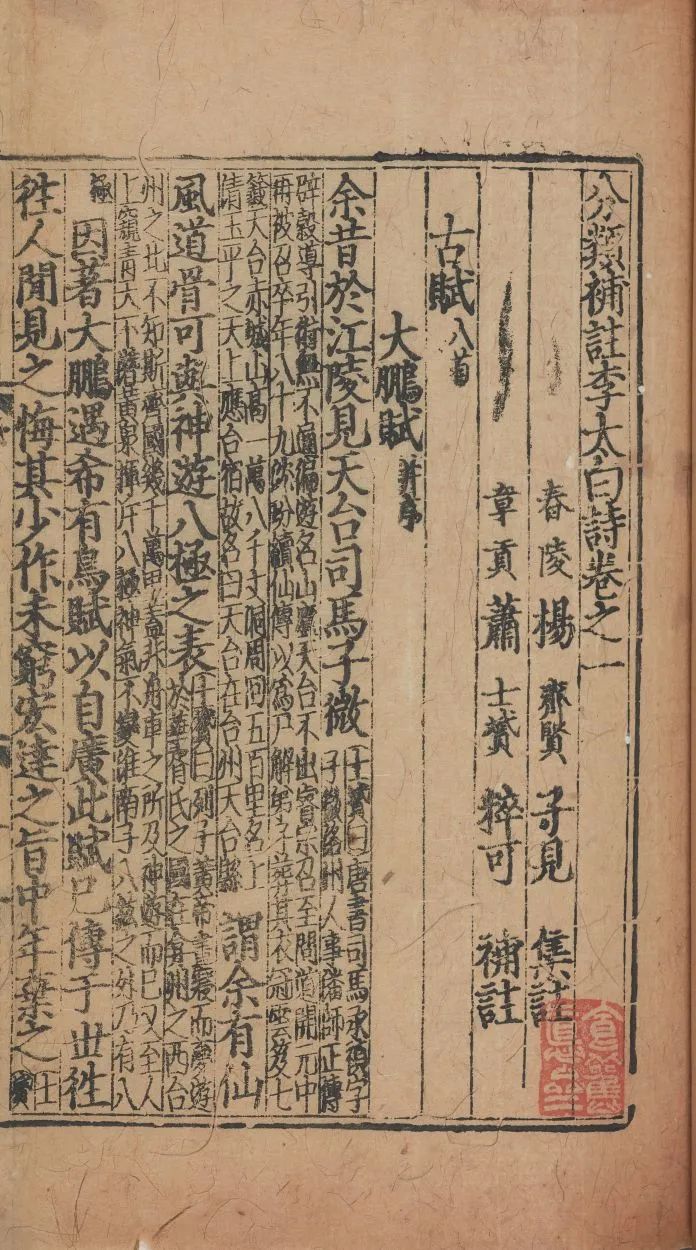 分類補註李太白詩卷之一
舂陵楊 齊賢 子見 集註
章貢蕭 士贇 粹可 補註
古賦八首
大鵬賦并序
余昔於江陵見天台司馬子微
士贇曰唐書司馬承禎字
子微洛州人事潘師正傳
辟穀導引術無不通徧遊名山廬天台不出睿宗召至問道開元中
再被召卒年八十九 續仙傳以為尸解弟子葬其衣冠 七
籤天台赤城山高一萬八千丈洞周回五百里名上
清玉平之天上應台宿故名曰天台在台州天台縣
謂余有仙
風道骨可與神遊八極之表
士贇曰列子黃帝晝寢而夢遊
於華胥氏之國在弇州之西台
州之北不知斯齊國幾千萬里蓋非舟車之所及神遊而已又至人
上窺青天下潛黃泉揮斥八極神氣不變淮南子八紘之外乃有八
極
因著大鵬遇希有鳥賦以自廣此賦已傳于世往
往人間見之悔其少作未窮宏達之旨中年棄之
士
贇